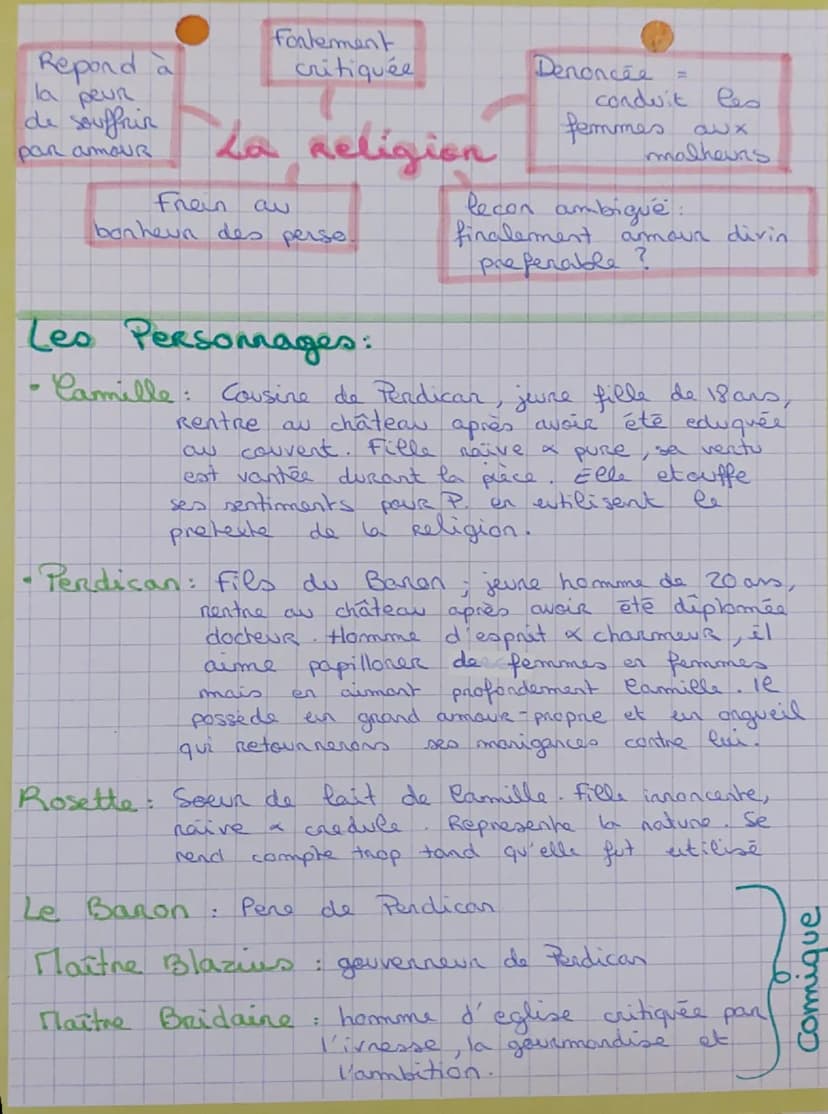 Repond à
la peur
de souffrir
par amour
Fortement
critiquée
Denoncée =
conduit les
femmes aux
malheurs
La religion
Frein au
bonheur des perso.
leçon ambiguë :
finalement amour divin
preferable ?
Les Personnages :
• Camille : Cousine de Perdican, jeune fille de 18 ans,
rentre au château après avoir été eduquée
au couvent. Fille naïve & pure, sa vertu
est vantée durant la pièce. Elle etouffe
ses sentiments pour P. en utilisent le
pretexte de la religion.
• Perdican : Fils du Baron ; jeune homme de 20 ans,
rentre au château après avoir été diplomée
docteur. Homme d'esprit & charmeur, il
aime papilloner de femmes en femmes
mais en aimant profondement Camille. Ie
possède un grand amour-propre et un orgueil
qui retournerons ses manigances contre lui.
Rosette : Soeur de lait de Camille. Fille innoncente,
naïve & credule. Represente la nature. Se
rend compte trop tard qu'elle fut utilisé
Le Baron : Pere de Perdican
Maître Blazius : gouverneur de Perdican
Maître Bridaine : homme d'eglise critiquée par
l'ivresse, la gourmandise et
l'ambition.
comique